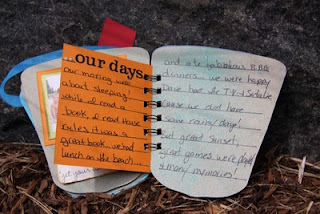 our days
our mornings were
about sleeping!
while I read a
book, & read House
Rules it was a
great book. we had
lunch on the beach...
and ate fabulous BBQ
dinners... we were happy
Dave had the T.V & Satalite
cause we did have
some rainy days!
but great sunsets,
great games were played
& many memories!
get your